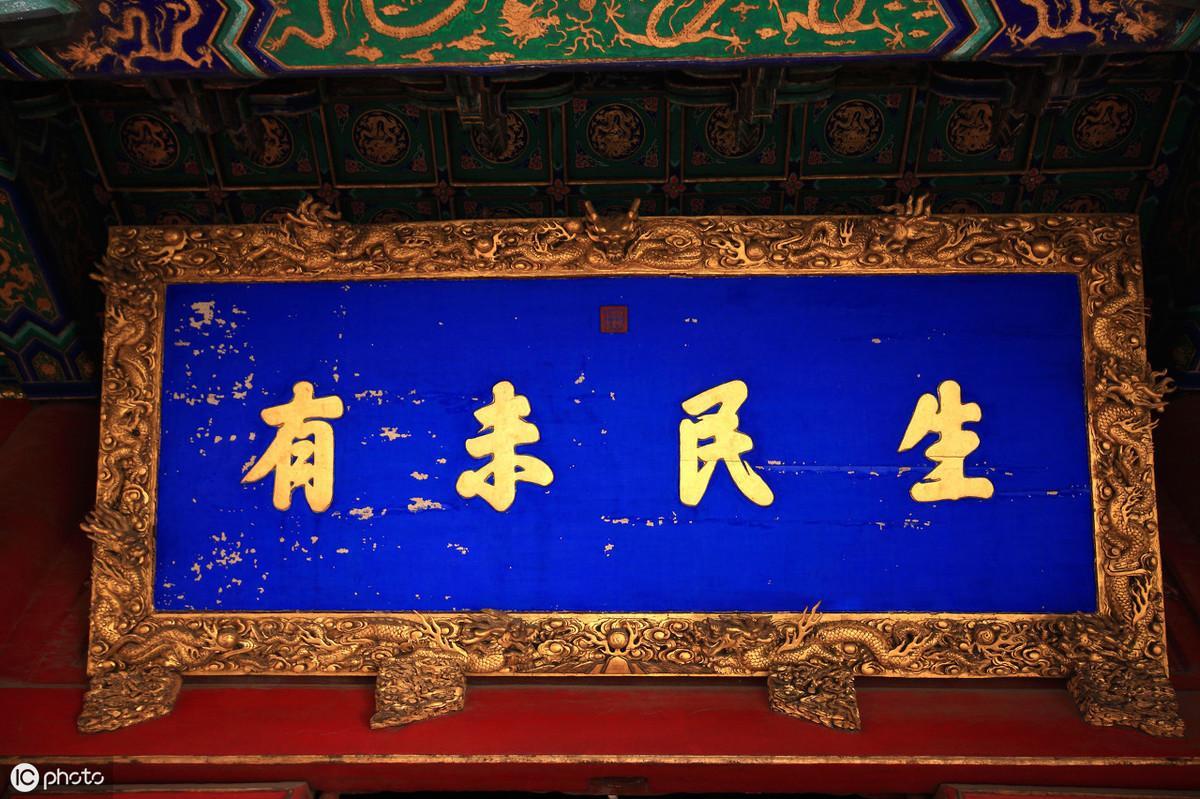 生民未有
IC photo